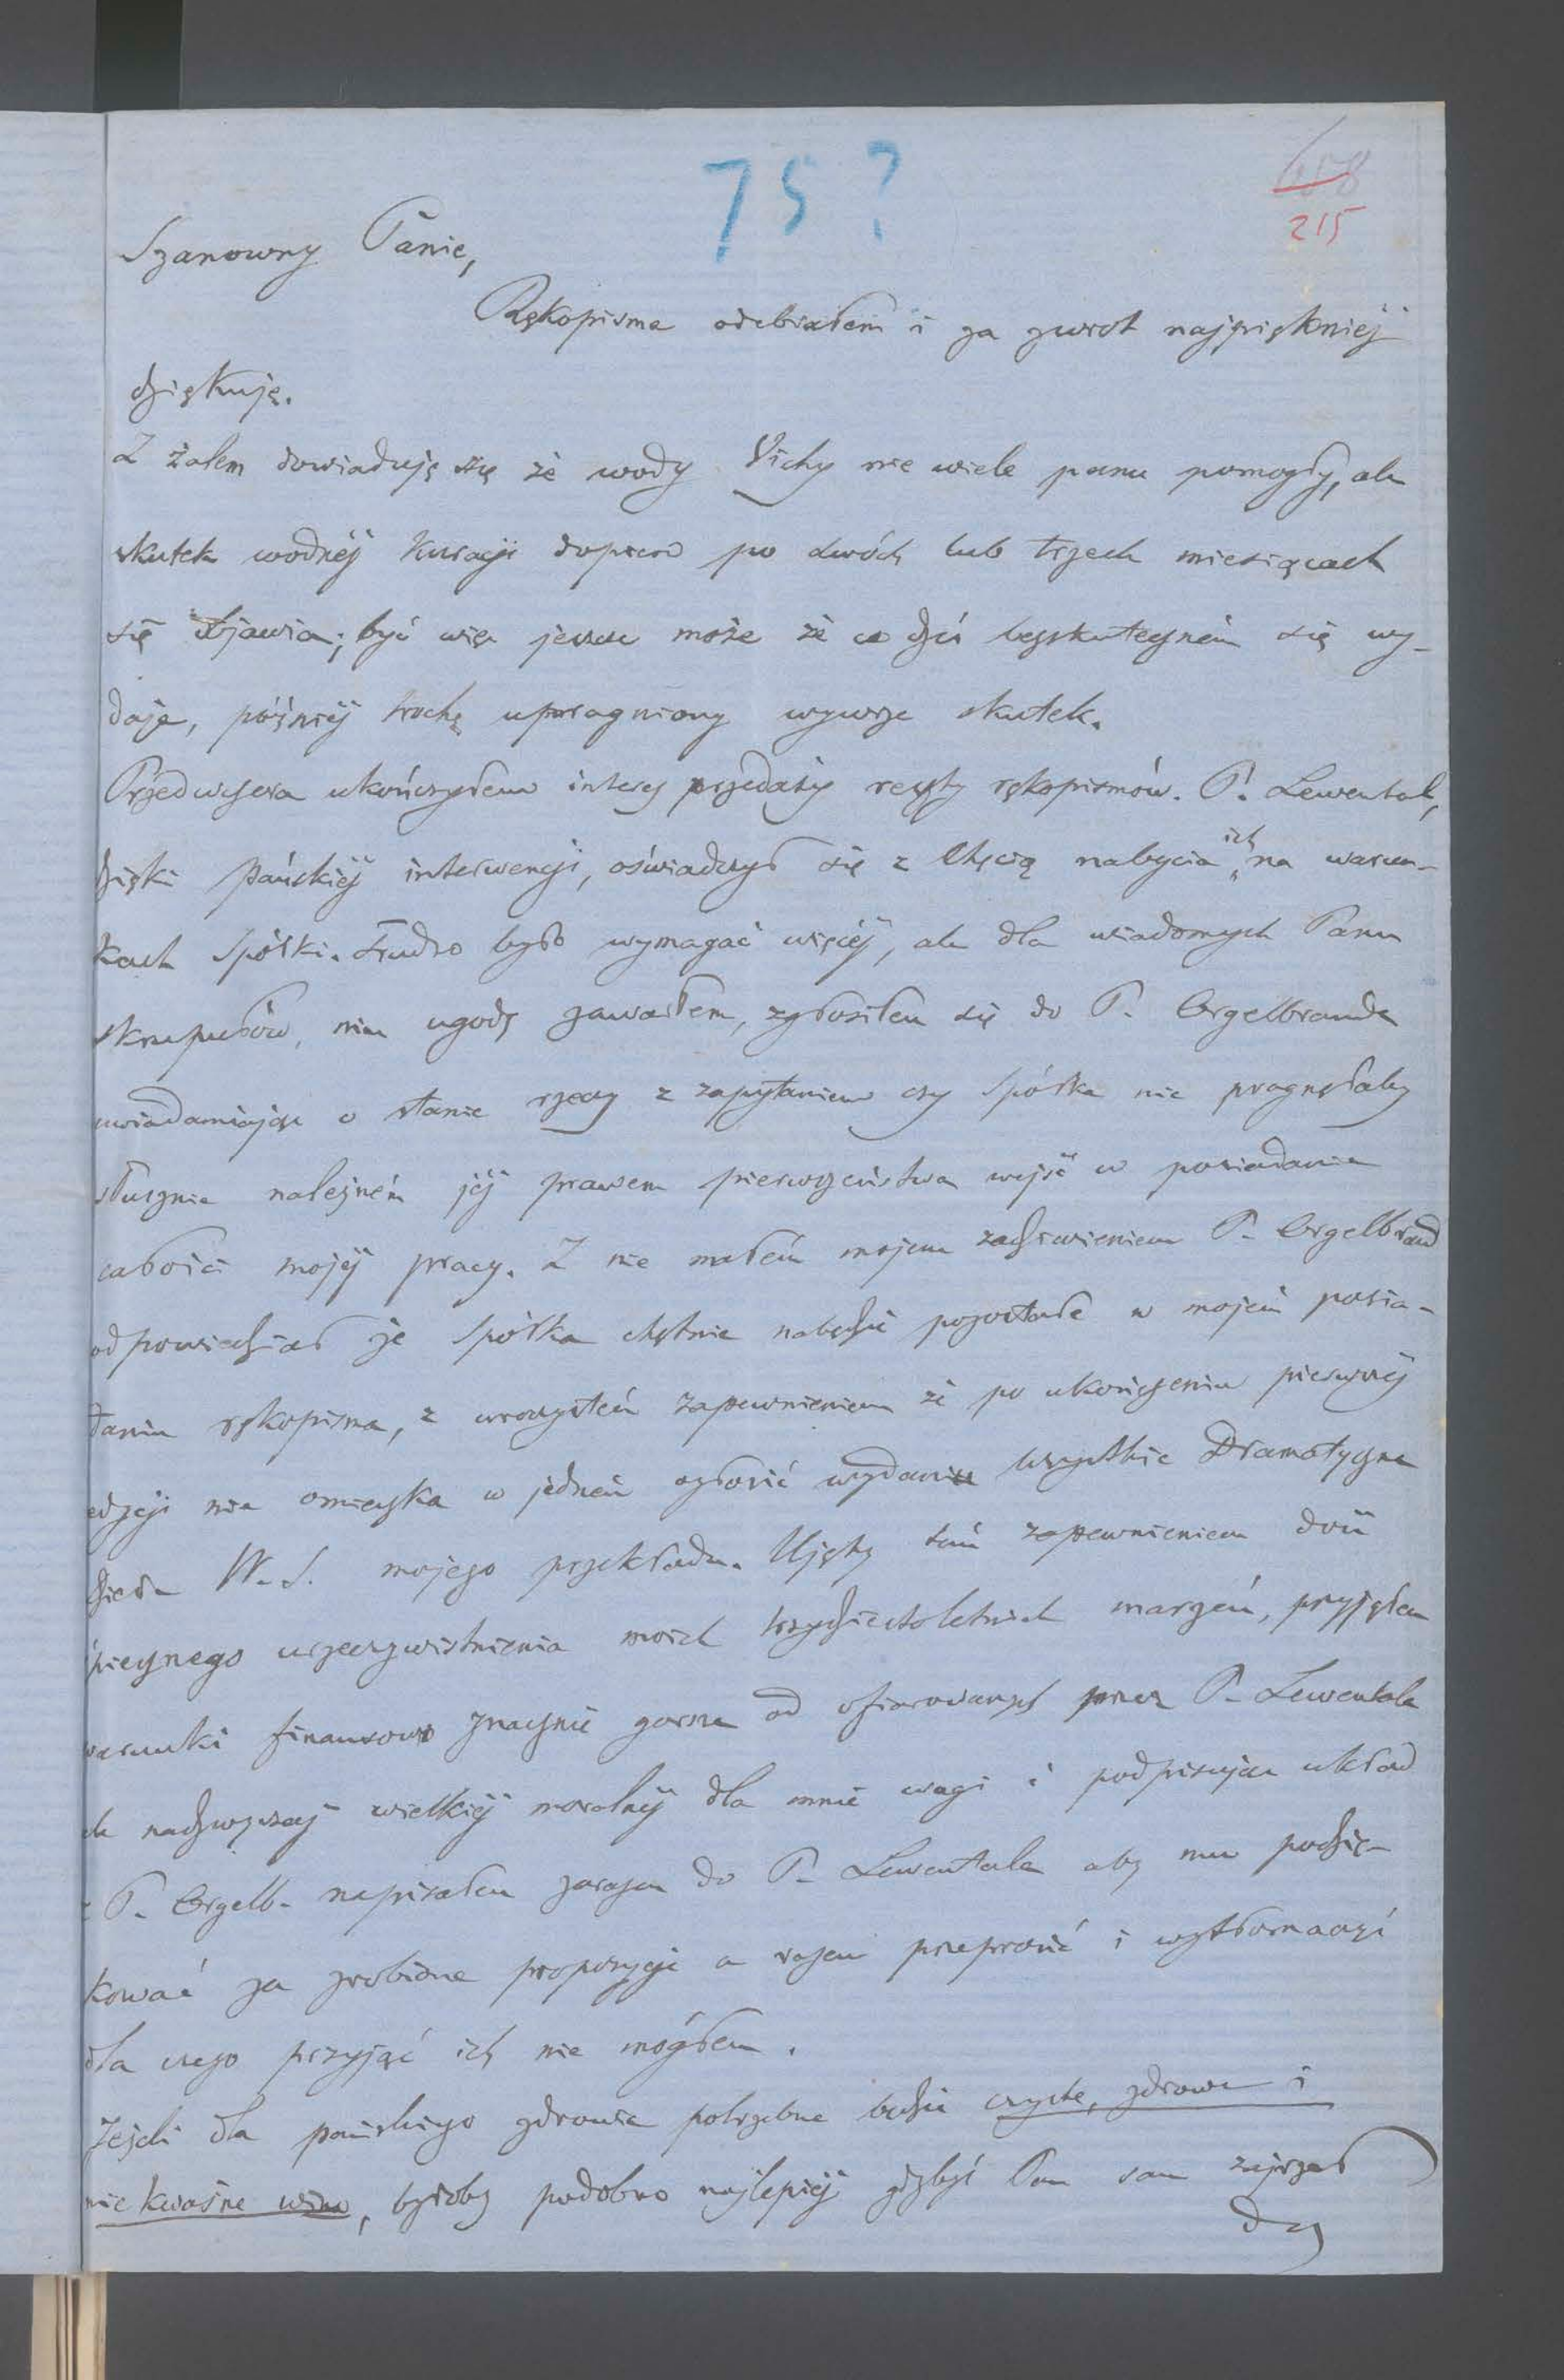 75?
658
215
Szanowny Panie,
Rękopisma odebrałem i za zwrot najpiękniéj
dziękuję.
Z żalem dowiaduję się że wody Vichy nie wiele panu pomogły, ale
skutek wodnéj kuracji dopiero po dwóch lub trzech miesiącach
się objawia; być więc jeszcze może że co dziś bezskuteczném się wy-
daje, późniéj trochę upragniony wywrze skutek.
Przedwczora ukończyłem interes przedaży reszty rękopismów. P. Lewental,
dzięki Pańskiéj interwencji, oświadczył się z chęcią nabycia ich na warun-
kach Spółki. Trudno było wymagać więcéj, ale dla wiadomych Panu
skrupułów, nim ugodę zawarłem, zgłosiłem się do P. Orgelbranda
uwiadamiając o stanie rzeczy z zapytaniem czy Spółka nie pragnęłaby
słusznie należném jéj prawem pierwszeństwa wejść w posiadanie
całości mojéj pracy. Z nie małém mojem zadziwieniem P. Orgelbrand
odpowiedział że Spółka chętnie nabędzie pozostałe w mojém posia-
daniu rękopisma, z uroczystém zapewnieniem że po ukończeniu pierwszéj
edycji nie omieszka w jedném ogłosić wydaniu wszystkie Dramatyczne
dzieła W. S. mojego przekładu. Ujęty tém zapewnieniem dość
śpiesznego urzeczywistnienia moich trzydziestoletnich marzeń, przyjąłem
warunki finansowe znacznie gorsze od ofiarowanych przez P. Lewentala
ale nadzwyczaj wielkiéj moralnéj dla mnie wagi i podpisując układ
z P. Orgelb. napisałem zarazem do P. Lewentala aby mu podzię-
kować za zrobione propozycje a razem przeprosić i wytłómaczyć
dla czego przyjąć ich nie mógłem.
Jeżeli dla pańskiego zdrowia potrzebne będzie czyste, zdrowe i
nie kwaśne wino, byłoby podobno najlepiéj gdybyś Pan sam zajrzał
do